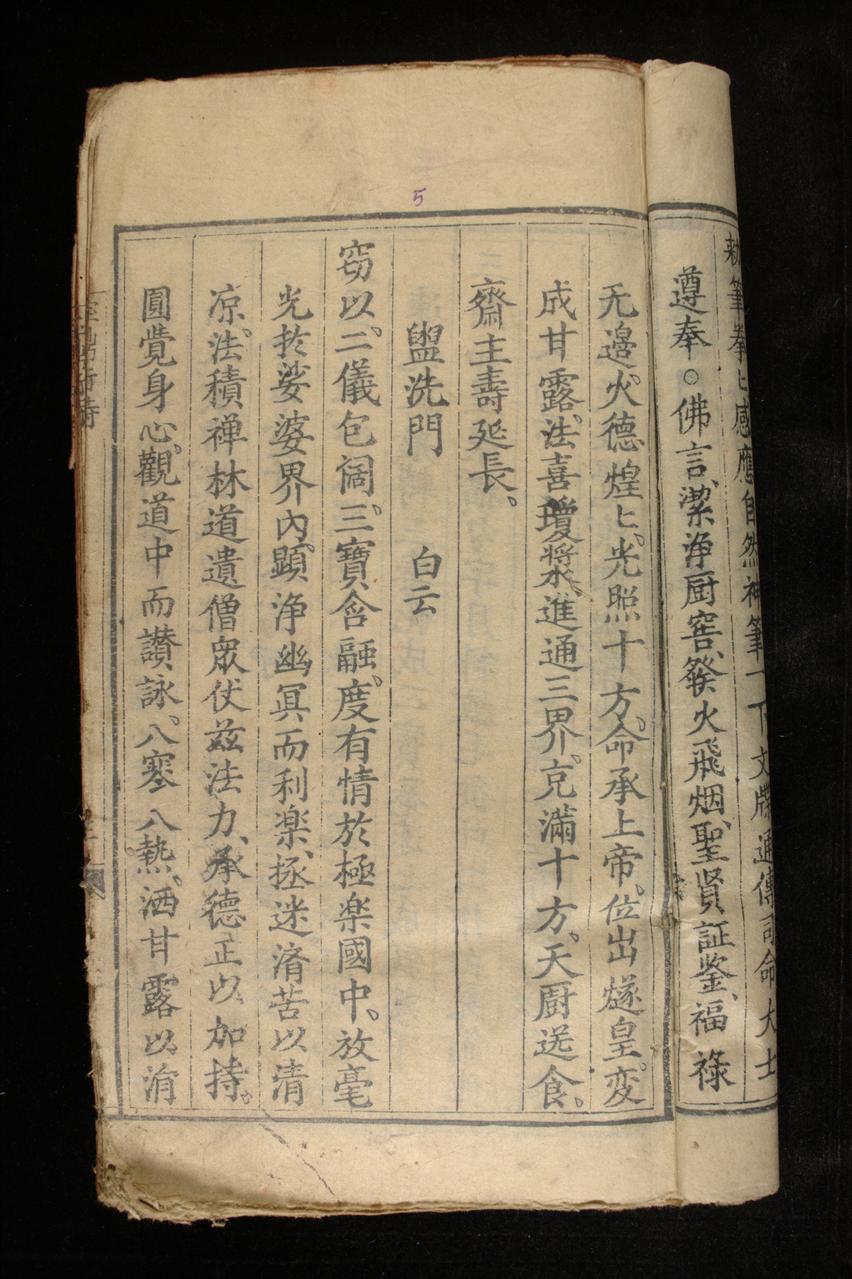 執筆拳〻感應自然神筆一下文牒通傳司命大士
遵奉○佛言、潔净厨窖、發火飛烟、聖贤証鉴、福禄
无邉。火德煌〻、光照十方、命承上帝、位出燧皇。变
成甘露、法喜瓊漿、進通三界、充滿十方。天厨送食。
齋主壽延長。
盥洗門 白云
窃以、二儀包阔、三寶含融、度有情於極楽國中、放毫
光扵娑婆界內、顕浄幽冥而利楽、拯迷濟苦以清
凉、法積禅林道遺僧眾伏茲法力、承德正以加持。
圓覺身心、觀道中而讃詠、八寒八熱、洒甘露以消
5